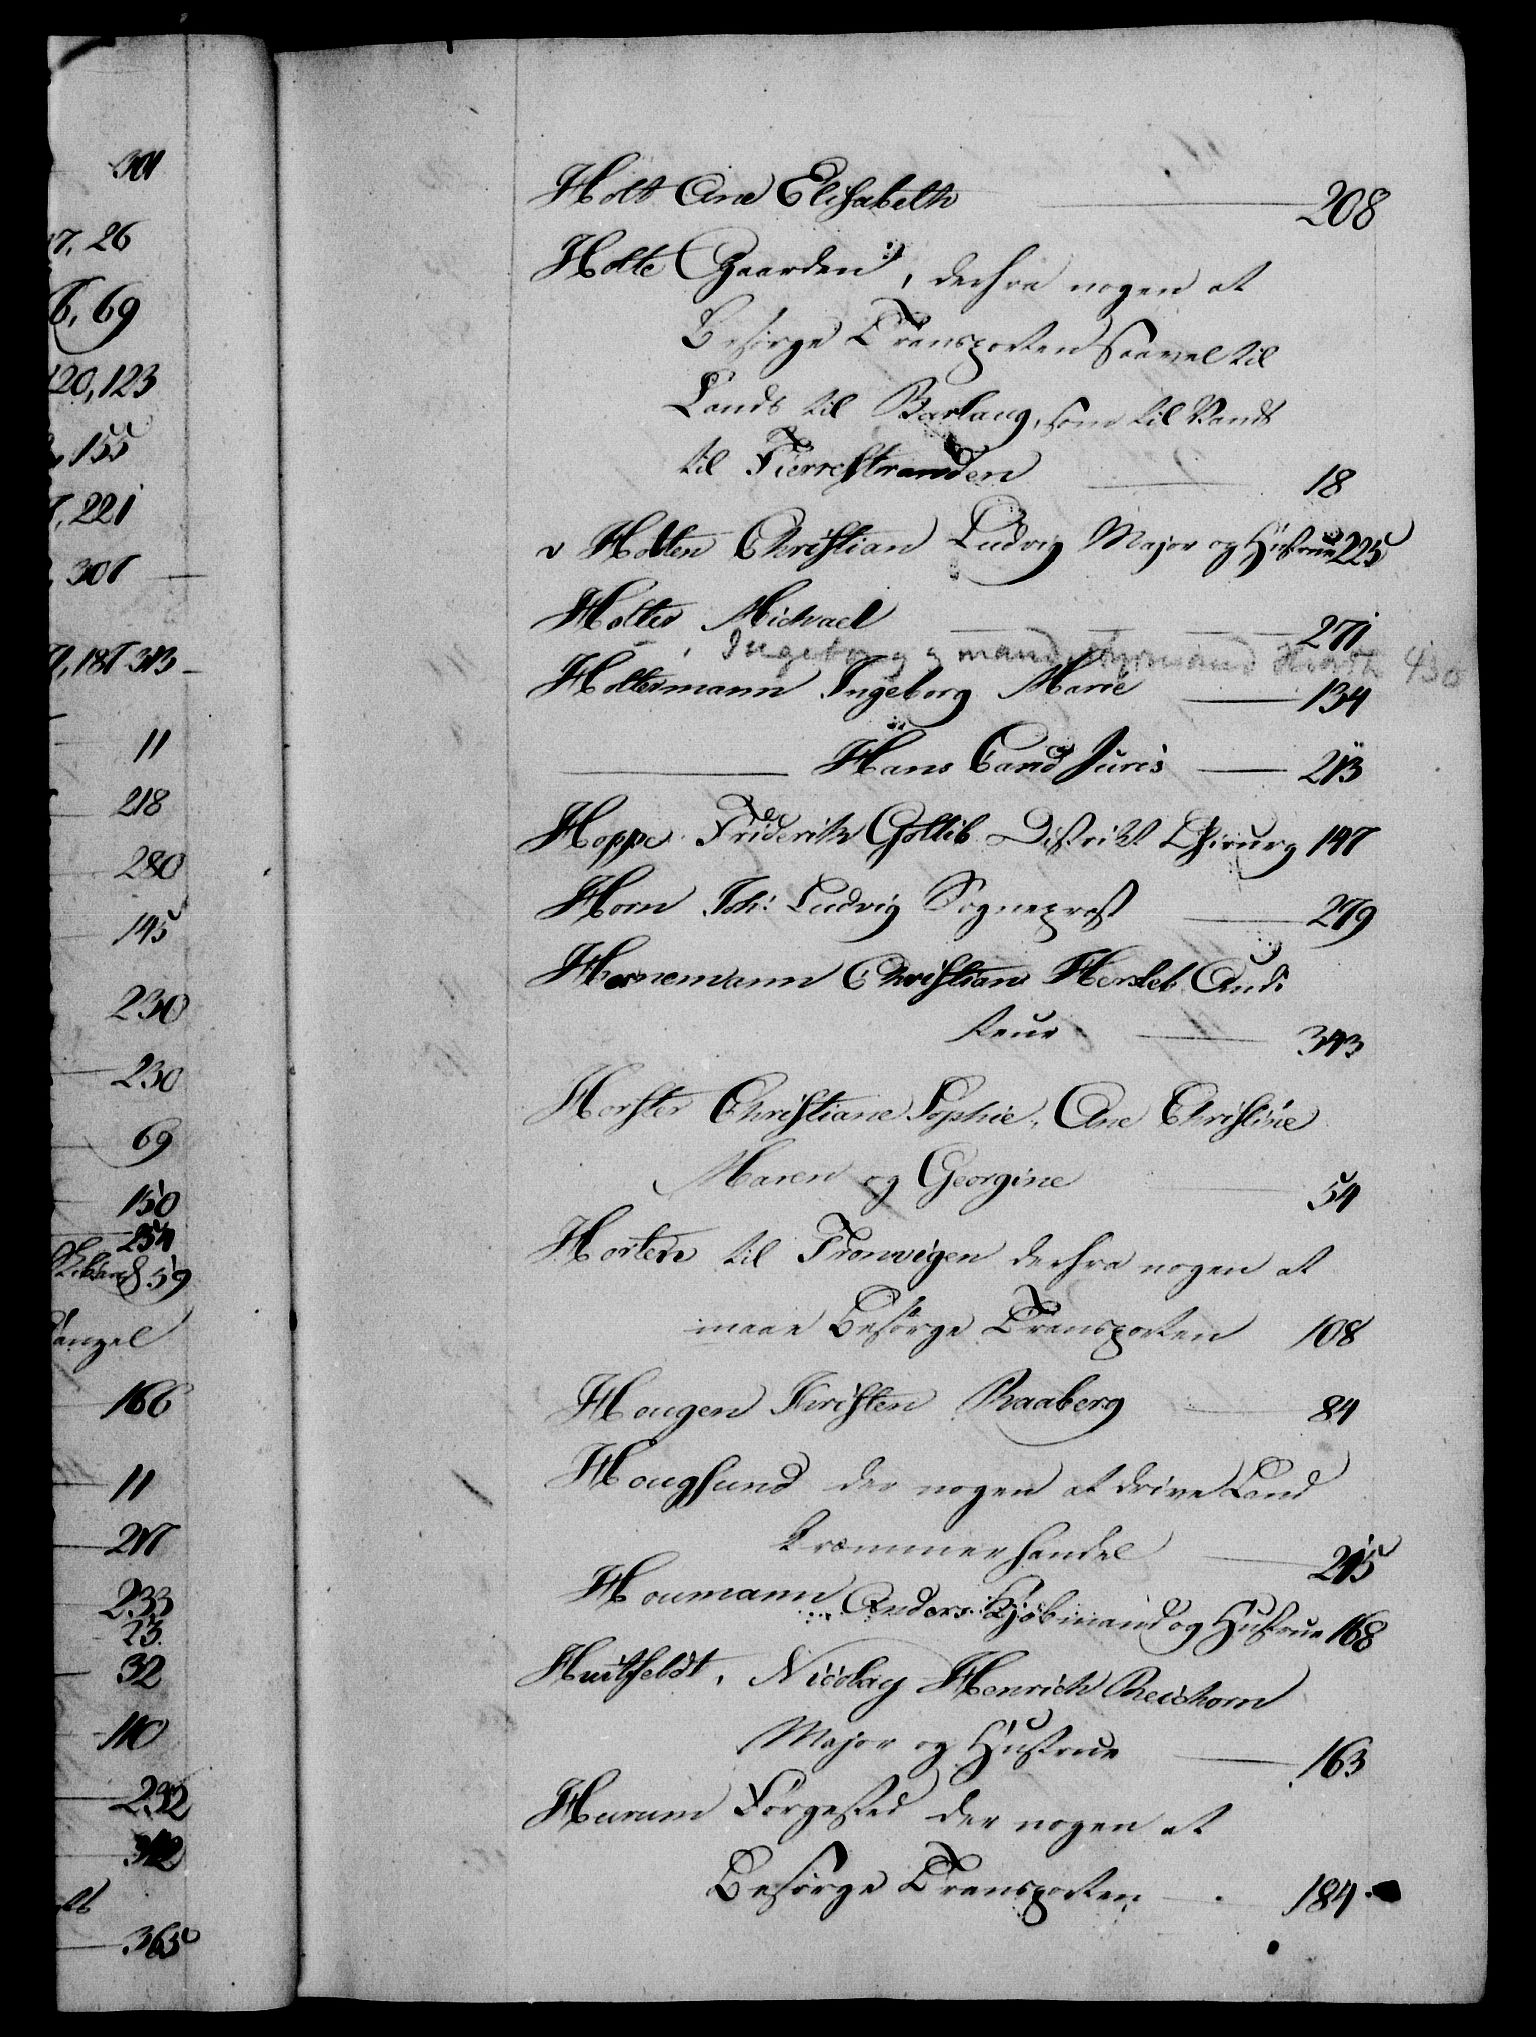 301
17, 26
6, 69
120, 123
155
7, 221
307
71, 187 313
11
218
280
145
230
230
69
150
254
59
166
11
217
233
23
32
110
232
312
365
Holt Ane Elisabeth 208
Holte Gaarden, derfra nogen at
besørge Transporten saavel til
Lands til Barlaug, som til Vands
til Fierrestranden 18
v Holten Christian Ludvig Major og Hustrue 225
Holter Michael 271
Ingeborg g mand 430
Holtermann Ingeborg Marie 134
Hans Cand Juris 213
Hoppe Friderik Gotlib Distrikt Chirurg 147
Horn Joh: Ludvig Sogneprest 279
Hornemann Christian Hersleb Audi
teur 343
Horster Christiane Sophie, Ane Christine
Maren og Georgine 54
Horten til Tronvigen derfra nogen at
maae besørge Transporten 108
Hougen Kristen Raaberg 84
Hougsund der nogen at drive Land
kræmmerhandel 215
Houmann Anders Kjøbmand og Hustrue 168
Huitfeldt, Nicolay Henrich Reichorn
Major og Hustrue 163
Hurum Færgested der nogen at
Besørge Transporten 184